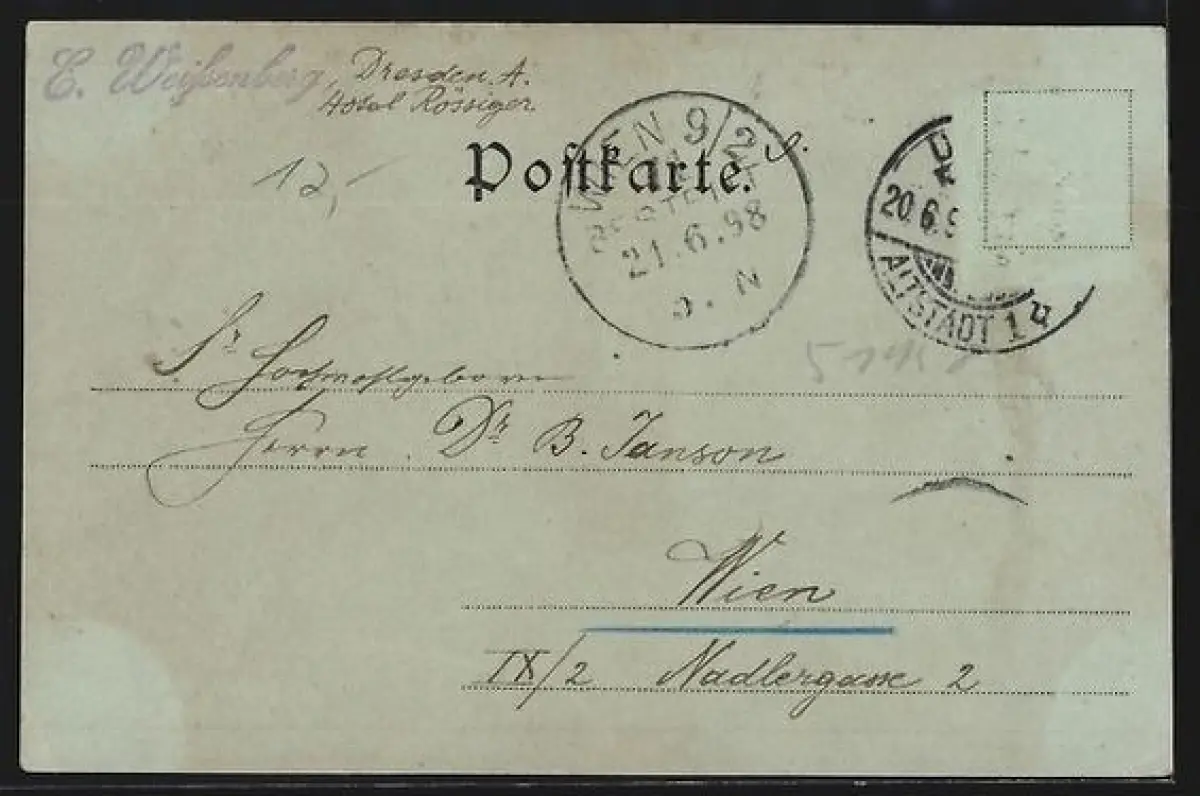 C. Weißenberg, Dresden A.
Hotel Rössiger.
12,-
Postkarte.
WIEN 9/2
BESTELLT
21.6.98
N
20.6.9
ALTSTADT 1 u
Sr. Hochwohlgeboren
Herrn Dr. B. Janson
Wien
IX/2 Nadlergasse 2